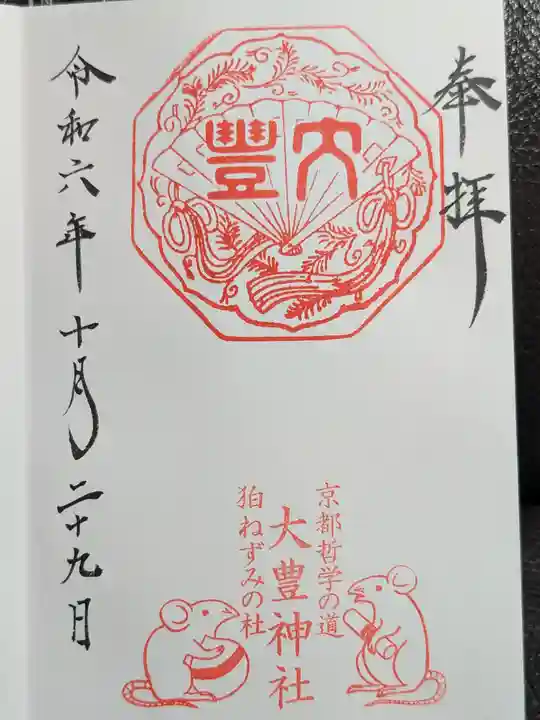 奉拝
大豐
京都哲学の道
大豊神社
狛ねずみの社
令和六年十月二十九日